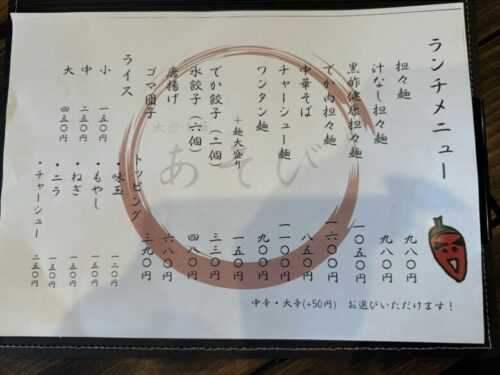 ランチメニュー
担々麺 九八〇円
汁なし担々麺 九八〇円
黒酢健康担々麺 一〇五〇円
でか肉担々麺 一六〇〇円
中華そば 八五〇円
チャーシュー麺 一一〇〇円
ワンタン麺 九〇〇円
+麺大盛り 一五〇円
でか餃子(二個) 三三〇円
水餃子(六個) 四八〇円
唐揚げ 六八〇円
ゴマ団子 三九〇円
ライス
小 一五〇円
中 二五〇円
大 四五〇円
トッピング
・味玉 一二〇円
・もやし 一五〇円
・ねぎ 一五〇円
・ニラ 一五〇円
・チャーシュー 二五〇円
中辛・大辛(+50円) お選びいただけます!
あそび